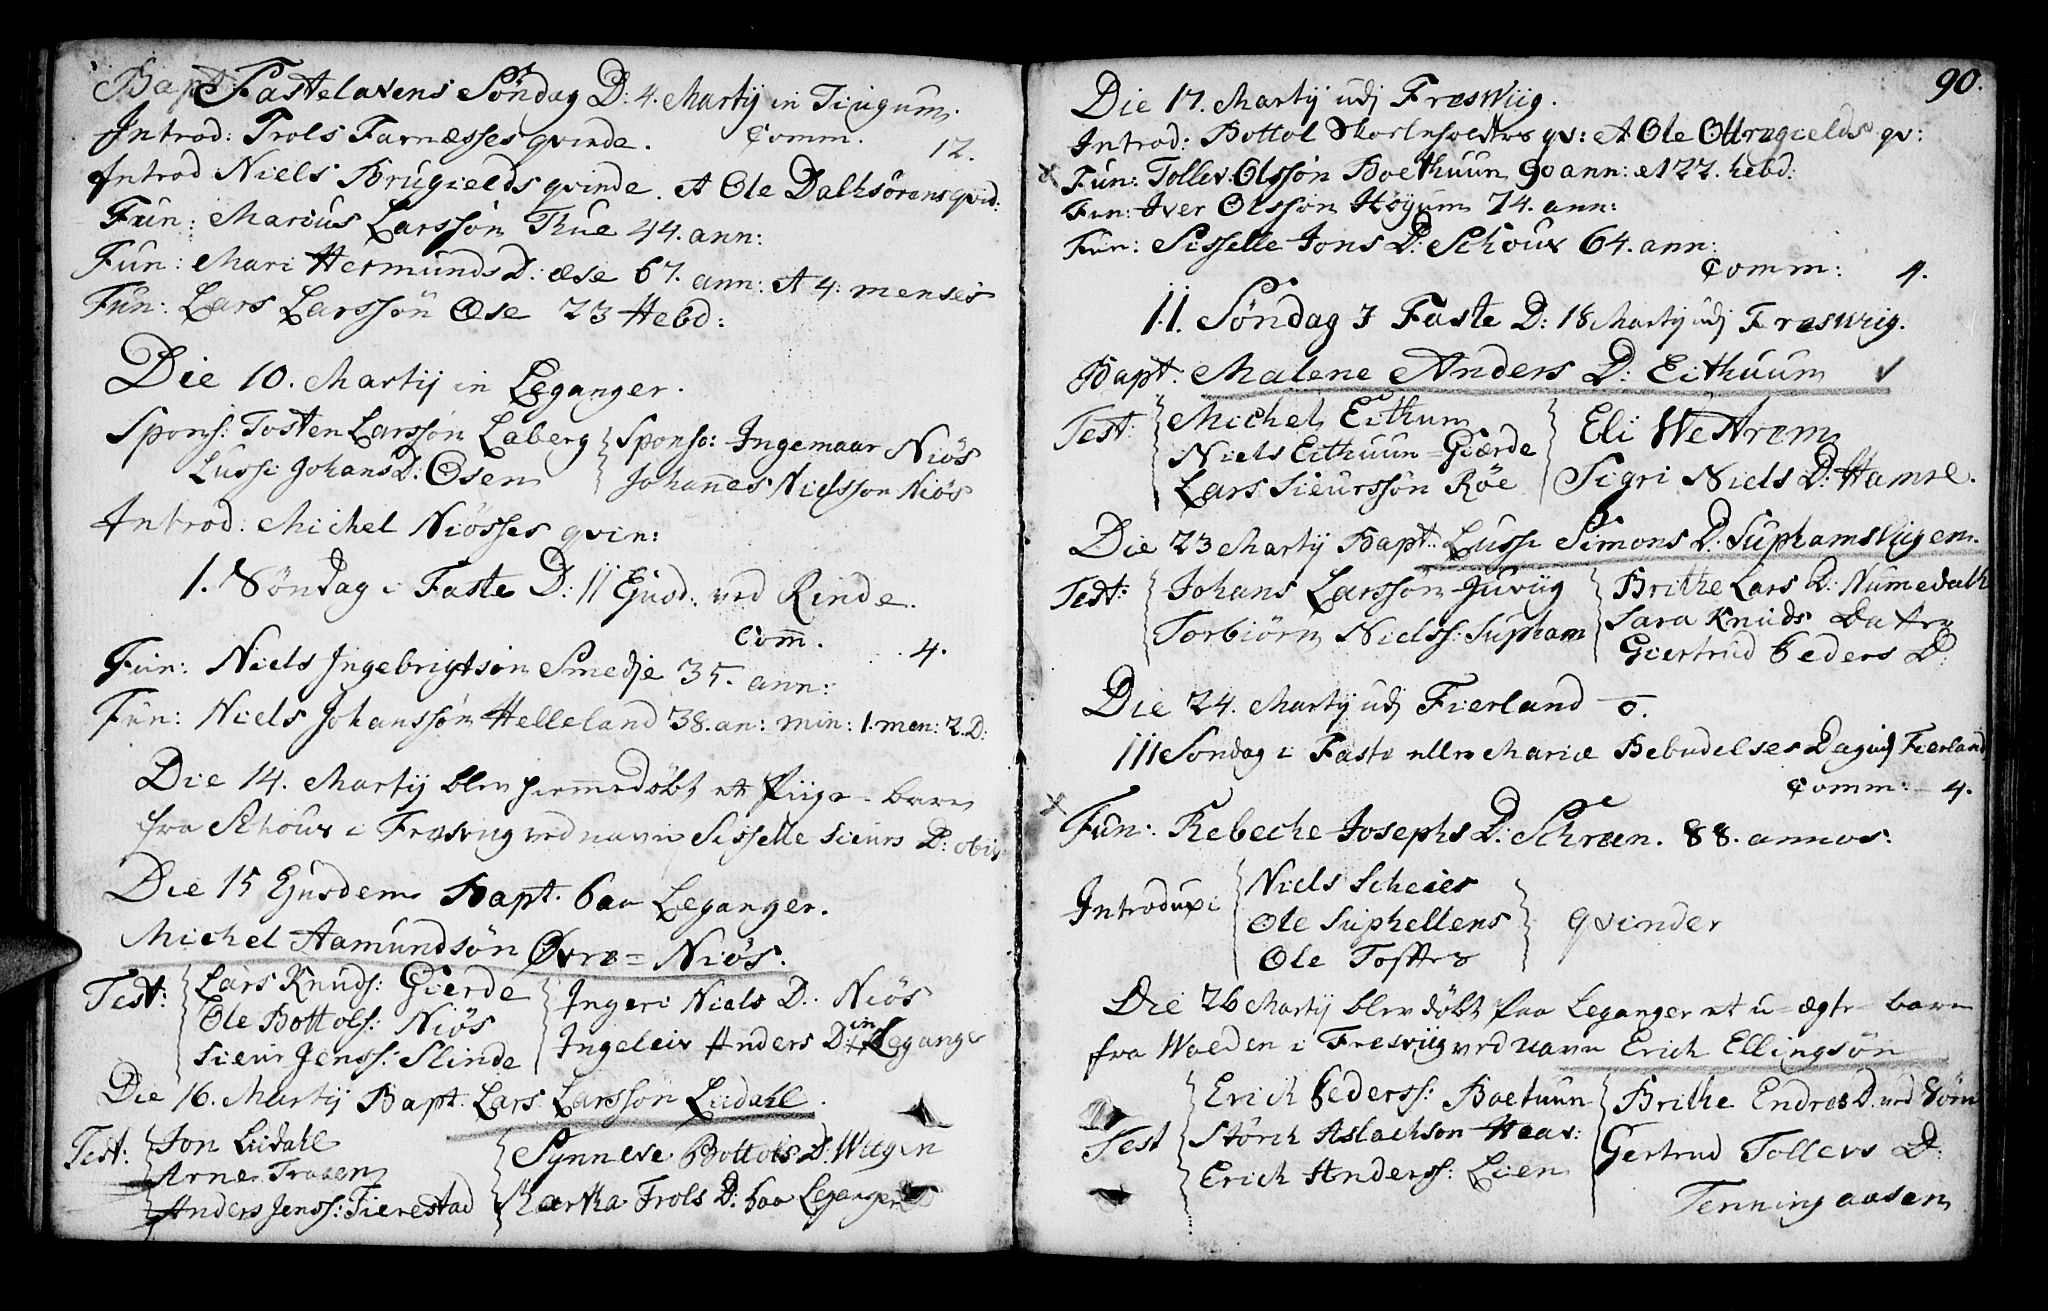 Bapt. Fastelavens Söndag D: 4. Martij in Tiugum.
Introd: Trols Farnæsses qvinde. Comm. 12.
Introd Niels Brugields qvinde. et Ole Dalhsörens qvid:
Fun: Marcus Larssön Thue 44. ann:
Fun: Mari Hermunds D: æse 67. ann: et 4: menses
Fun: Lars Larssön Æse 23 Hebd:
Die 10. Martij in Leganger.
Spons: Tosten Larssön Laberg
Lussi Johans D. Osen
Sponso: Ingemaar Niös
Johannes Nielsson Niös
Introd: Michel Niösses qvin:
1. Söndag i Faste D: 11 Ejusd: ved Rinde.
Com̄. 4.
Fun: Niels Ingebrigtsön Smedje 35. ann:
Fun: Niels Johanssön Helleland 38. an: min: 1. men: 2. D:
Die 14. Martij blev hiem̄edöbt et Piige-barn
fra Schouv i Fresvug ved navn Sisselle Sieurs D: obiit
Die 15 Ejusdem Bapt. paa Leganger.
Michel Aamundsön Øvre=Niös.
Test: Lars Knuds: Gierde
Ole Bottols: Niös
Sieur Jenss: Slinde
Ingeri Niels D: Niös
Ingeleiv Anders D: in Leganger
Die 16. Martij Bapt. Lars Larssön Liidahl.
Test: Jon Liidahl
Arne Traaen
Anders Jenss: Fierestad
Synneve Bottols D: Wiigen
Martha Trols D: paa Leganger
90.
Die 17. Martij udj Freswiig.
Introd: Bottol qv: et Ole Ottregields qv:
Fun: Tollev Olssön Boethuun 90 ann: et 22. hebd:
Fun: Iver Olssön Höyum 74. ann:
Fun: Sisselle Jons D: Schouv 64. ann:
Comm: 4.
11. Söndag I Faste D: 18 Martij udj Freswiig.
Bapt: Malene Anders D: Eithuum
Test: Michel Eithum
Niels Eithuun=Gierde
Lars Sieurssön Röe
Eli Westrem
Sigri Niels D: Hamre.
Die 23 Martij Bapt: Lussi Simons D. Suphamsviigen.
Test: Johans Larssön Juviig
Torbiörn Nielss: Supham
Brithe Lars D: Numedahl
Sara Knuds Datter
Giertrud Peders D:
Die 24. Martij udj Fierland o.
111 Söndag i Faste eller Mariæ Bebudelses Dag udj Fierland
Comm: 4.
Fun: Rebeche Josephs D: Schreen. 88. annos:
Introduxi Niels Scheies
Ole Suphellens
Ole Toftes
qvinder
Die 26 Martij blev döbt paa Leganger et u=ægte barn
fra Wolden i Fresviig ved navn Erich Ellingsön
Test Erich Pederss: Boetuun
Störch Aslachson Haav:
Erich Anderss: Lien
Brithe Endres D. ved Sörn
Gertrud Tollevs D:
Tenningaasen